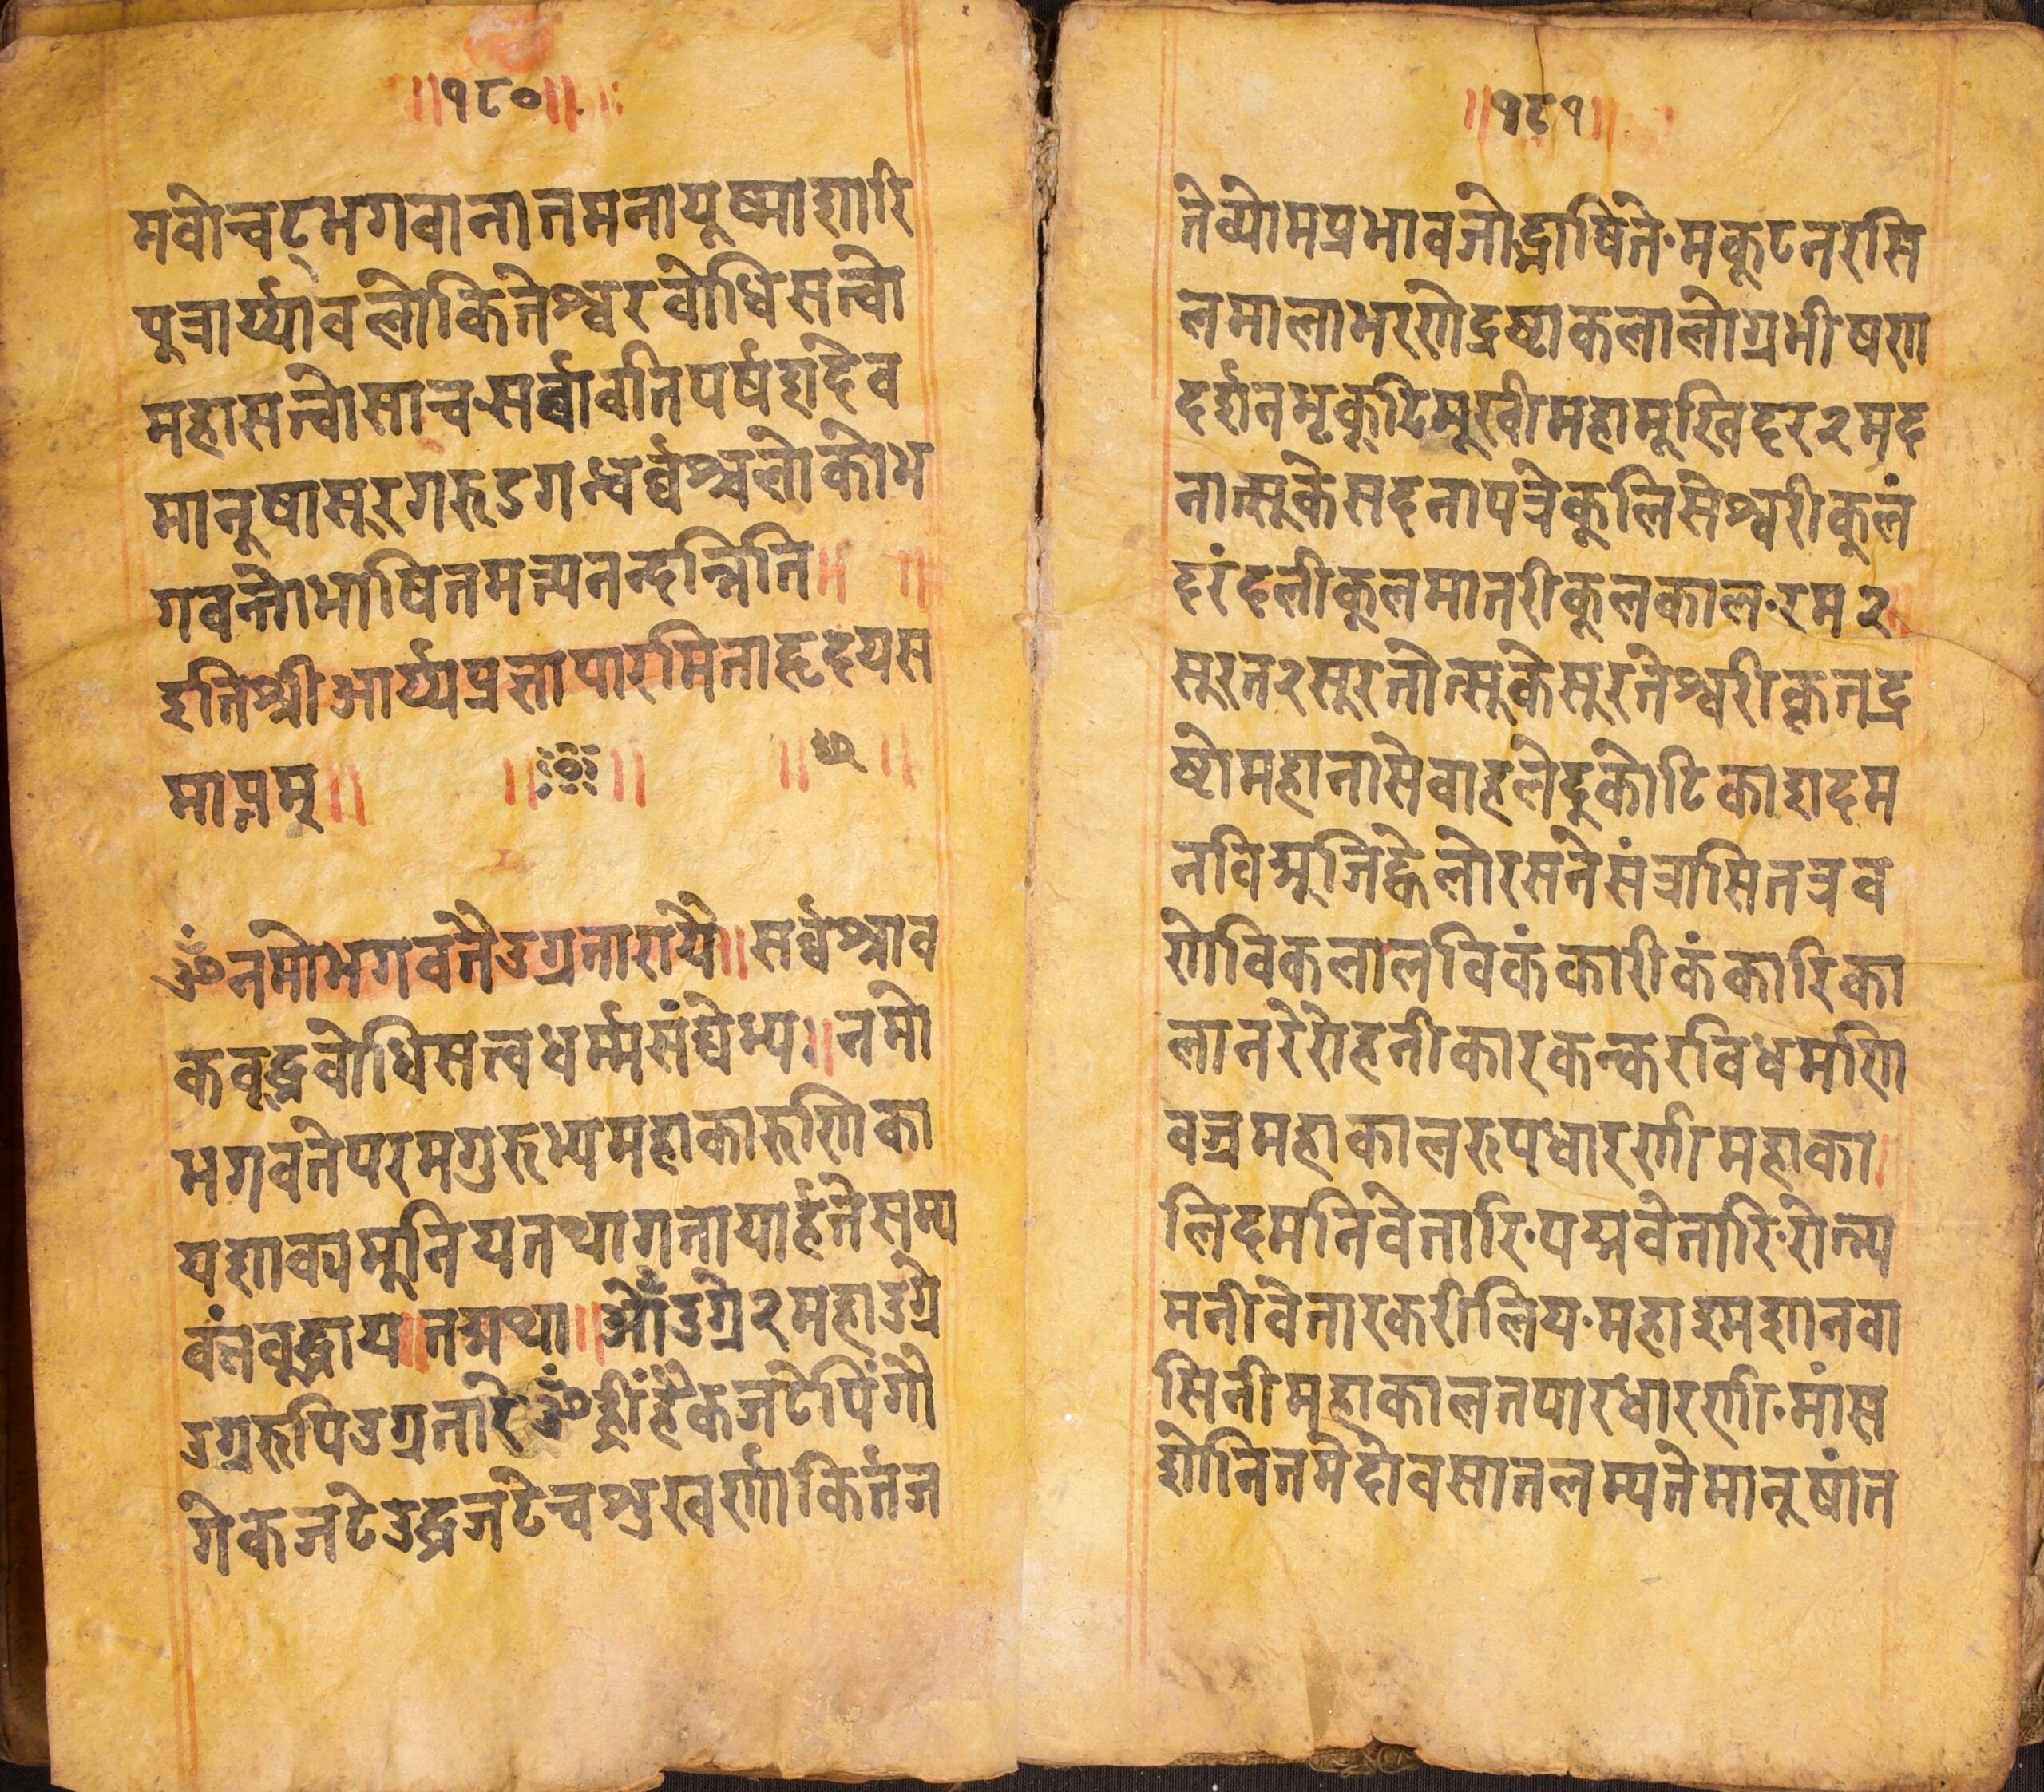 ॥१८०॥
मवोचद्भगवानातमनायूष्माशारि
पुत्रार्य्यावलोकितेश्वरवोधिसत्वो
महासत्वोसाचसर्व्वावतिपर्षशदेव
मानूषासूरगरूडगन्धर्व्वश्चलोकोभ
गवन्तोभाषितमभ्यनन्दन्निति॥
इतिश्रीआर्य्यप्रज्ञापारमिताहृदयस
माप्तम्॥
ॐनमोभगवतैउग्रतारायै॥सर्व्वश्राव
कवूद्धवोधिसत्वधर्म्मसंघेभ्यः॥नमो
भगवतेपरमगुरूभ्यमहाकारुणिका
यशाक्यमूनियतथागतायार्हतेसम्य
क्संवूद्धाय॥तद्यथा॥ओँउग्रे२महाउग्रे
उग्ररूपिउग्रतारेॐह्रींहूँकजटेपिंगो
गेकजटेउर्द्धजटेचश्रुखर्णाकिर्तज
॥१८१॥
तेव्योमप्रभावजोद्भाषिते·मकूटनरसि
लमालाभरणेद्रष्टाकलालोग्रभीषण
दर्शनमृकूटिमूखीमहामूखिहर२मद
नात्सूकेसदनापत्रेकूलिसेश्वरीकूलं
हरंदलीकूलमातरीकूलकाल·रम२
सूरत२सूरतोत्सूकेसूरतेश्वरीकृतद्र
ष्टोमहानासेवाहलेदूकोटिकाशदम
नविद्यूजिह्वेलोरसनेसंत्रासितत्रव
णेविकलालविकंकारीकंकारिका
लानरेरोहनीकारकन्करविधमणि
वज्रमहाकालरूपधारणीमहाका
लिदमनिवेतारि·पद्मवेतारि·रोत्म्य
मनीवेतारकरीलिय·महाश्मशानवा
सिनीमहाकालतपारधारणी·मांस
शोनितमेदोवसातलम्यतेमानूषांत